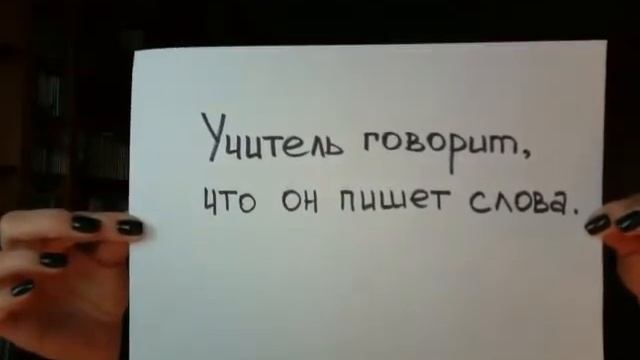 Учитель говорит,
что он пишет слова.